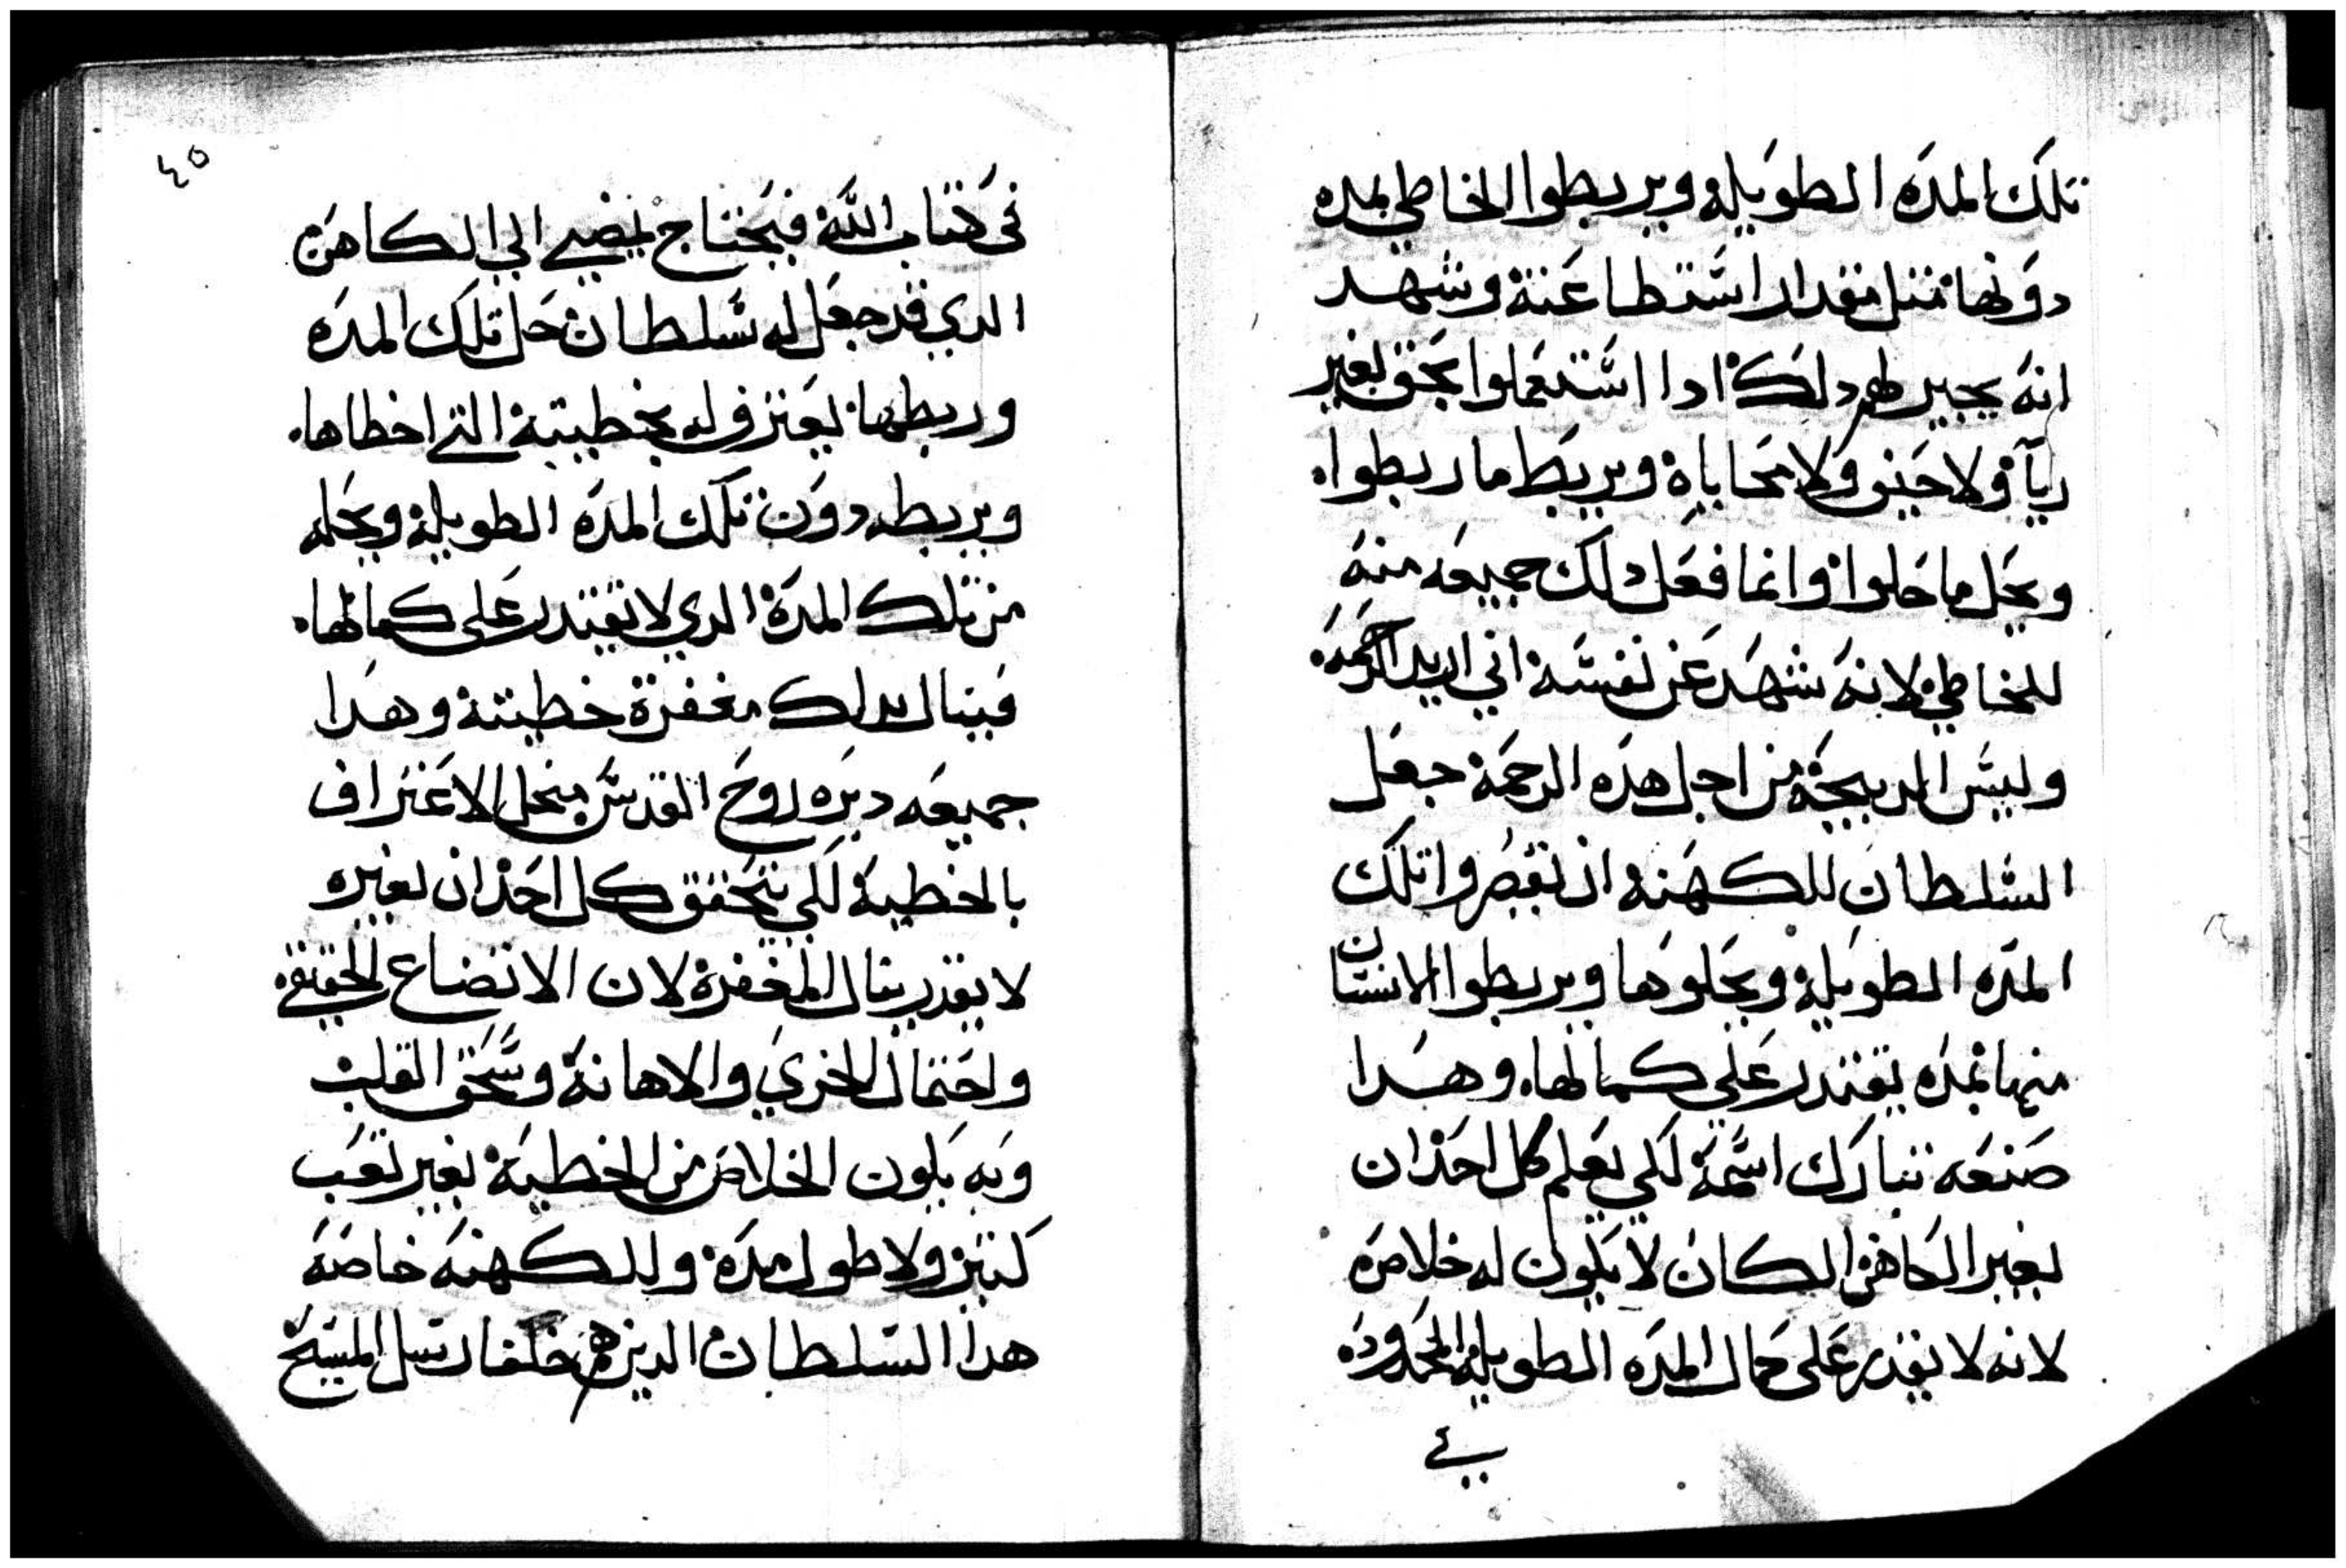 تلك المده الطويله ويربطوا الخاطي بمده
دونها متل مقدار استطاعته وشهد
انه يجير لهم دلك ادا استعملوا بحق بغير
ريآ ولا حيف ولا محاباة ويربط ما ربطواه
ويحل ما حلوا وانما فعل دلك جميعه منه
للخاطي لانه شهد عن نفسه اني اريد الرحمه
وليس الدبيحة من اجل هده الرحمة جعل
السلطان للكهنه ان يقصروا تلك
المده الطويله ويحلوها ويربطوا الانسان
منها بمده يقتدر على كمالها. وهدا
صنعه تبارك اسمه لكي يعلم كل احد ان
بغير الكاهن لا يكون له خلاص
لانه لا يقدر على كمال المده الطويله المحدوده
في
٤٥
في كتاب الله فيحتاج يمضي الى الكاهن
الدي قد جعل له سلطان حل تلك المده
وربطها يعترف له بخطيته التي اخطاها.
ويربطه دون تلك المده الطويله ويحله
من تلك المدة الدي لا يقتدر على كمالها.
فينال بدلك مغفرة خطيته وهدا
جميعه دبره روح القدس الاعتراف
بالخطية لكي يتحقق كل احد ان بغيره
لا يقدر ينال المغفرة لان الاتضاع الحقيقي
واحتمال الخزي والاهانة وسحق القلب
وبه يكون الخلاص من الخطية بغير تعب
كتير ولا طول مدة وللكهنه خاصه
هدا السلطان الدين هم خلفا رسل المسيح